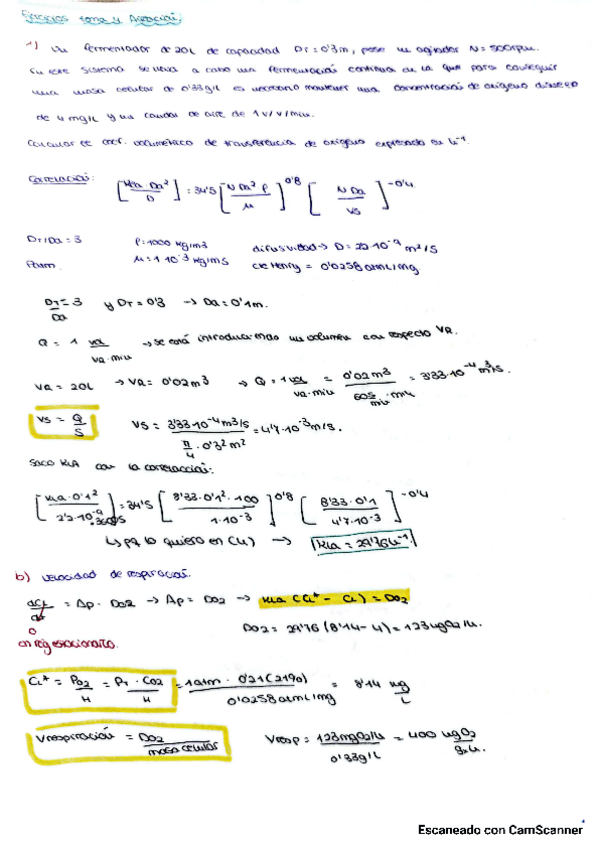 Ejercicios tema 4 Aireación.
1) Un fermentador de 20L de capacidad DT=0'3m, posee un agitador N=500rpm.
En este sistema se lleva a cabo una fermentación continua en la que para conseguir
una masa celular de 0'33g/L es necesario mantener una concentración de oxígeno disuelto
de 4 mg/L y un caudal de aire de 1 v/v/min.
Calcular el coef. volumétrico de transferencia de oxígeno expresado en h⁻¹.
Correlación: [KLa Da²/D] = 34'5 [N Da² ρ/μ]^0'8 [N Da/VS]^-0'4
DT/Da = 3 ρ=1000 kg/m3 difusividad → D= 22·10⁻⁹ m²/s
Patm. μ=1·10⁻³ kg/ms cte Henry = 0'0258 atmL/mg
DT/Da = 3 y DT=0'3 → Da=0'1m.
Q = 1 vol/VR·min → se está introduciendo un volumen con respecto VR.
VR = 20L → VR= 0'02m³ → Q = 1 vol/VR·min = 0'02m³/60s/min·min = 3'33·10⁻⁴ m³/s.
VS = Q/S VS = 3'33·10⁻⁴m3/s / π/4·0'3²m² = 4'7·10⁻³m/s.
Saco KLA con la correlación:
[KLa·0'1²/2'2·10⁻⁹·3600s] = 34'5 [8'33·0'1²·100/1·10⁻³]^0'8 [8'33·0'1/4'7·10⁻³]^-0'4
↳ pq lo quiero en (h) → KLa = 29'76h⁻¹
b) Velocidad de respiración.
dCL/dt = Ap - DO2 → Ap = DO2 → KLa (CL* - CL) = DO2
0
en reg estacionario. DO2 = 29'76 (8'14-4) = 123mgO2/Lh.
CL* = PO2/H = PT·CO2/H = 1atm·0'21(21%)/0'0258atmL/mg = 8'14 mg/L
Vrespiración = DO2/masa celular Vresp = 123mgO2/Lh/0'33g/L = 400 mgO2/gx·h.
Escaneado con CamScanner